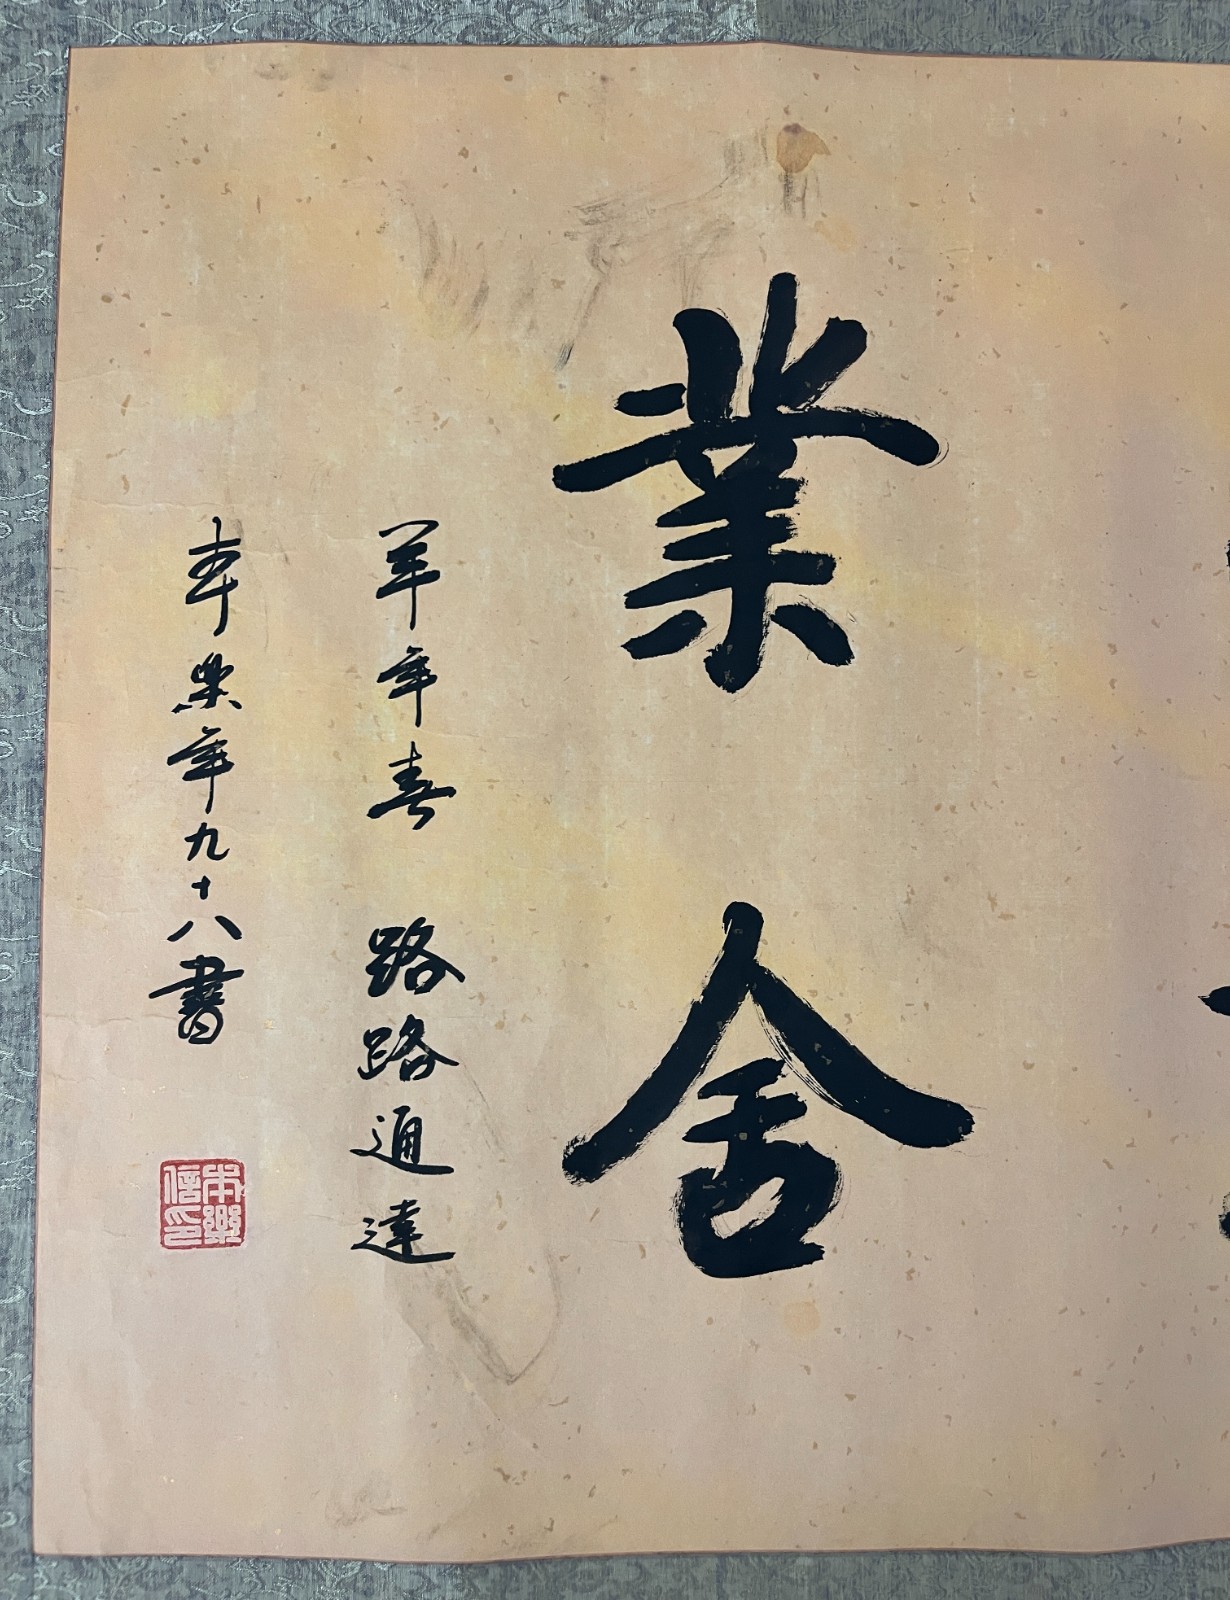 業舍
羊年春 路路通達
本樂年九十八書
本樂信印